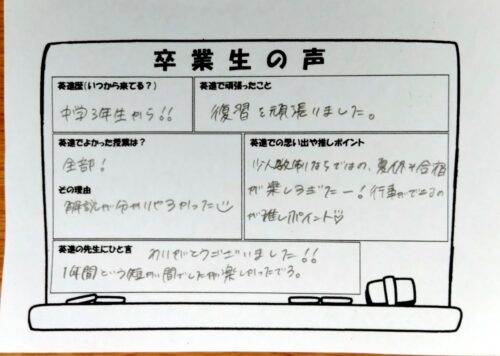 卒業生の声
英進歴(いつから来てる?)
中学3年生から!!
英進で頑張ったこと
復習を頑張りました。
英進でよかった授業は?
全部!
その理由
解説が分かりやすかった
英進での思い出や推しポイント
少人数制ならではの、夏休み合宿
が楽しすぎたー!行事ができるの
が推しポイント
英進の先生にひと言
ありがとうございました!!
1年間という短い間でしたが楽しかったです。